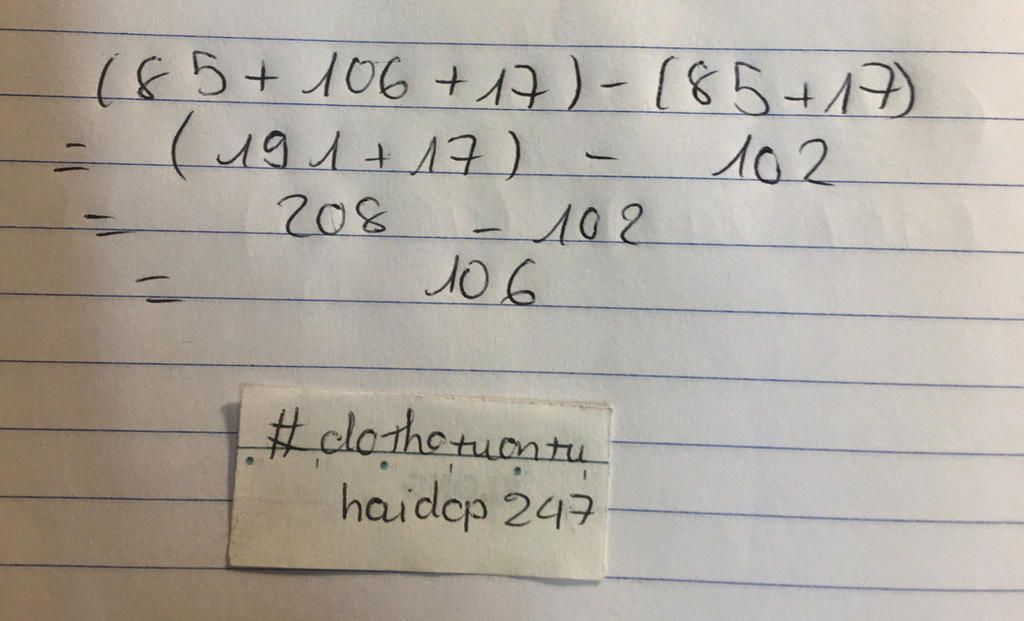 (85 + 106 + 17) - (85 + 17)
= (191 + 17) - 102
= 208 - 102
= 106
#dothotuontu
haidop 247